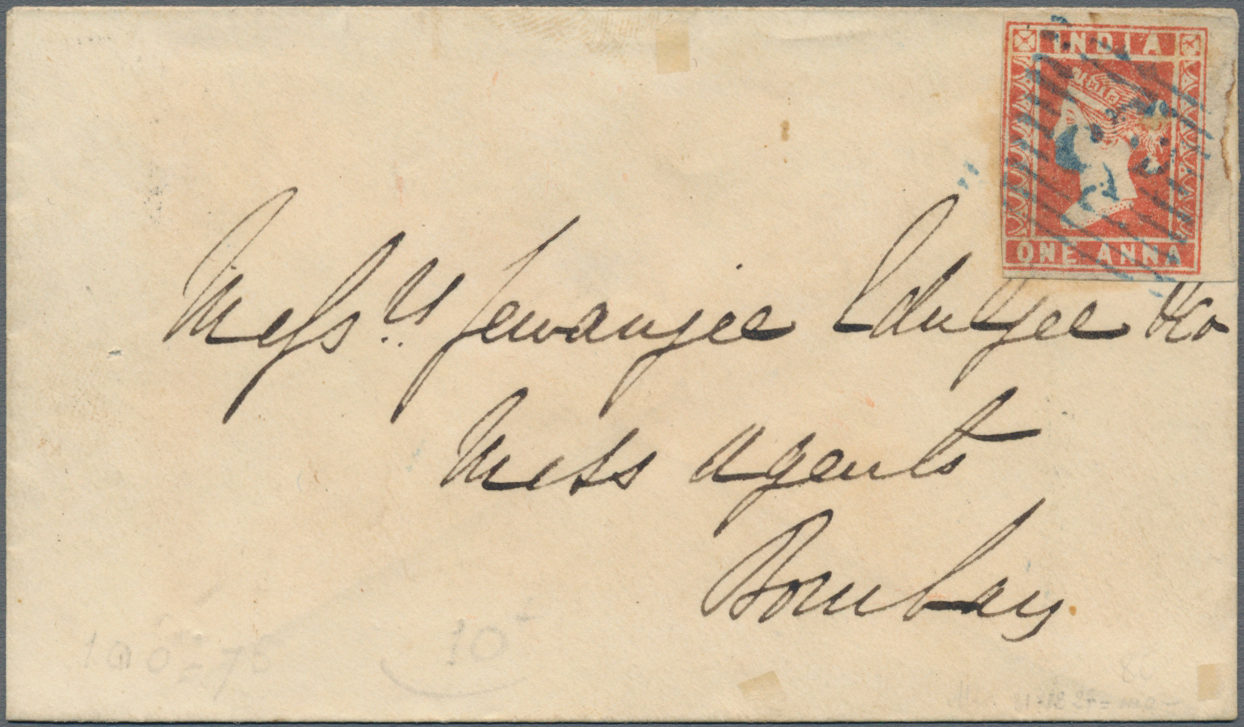 INDIA
ONE ANNA
Messrs Jewanjee Eduljee & Co
Mess Agents
Bombay
10